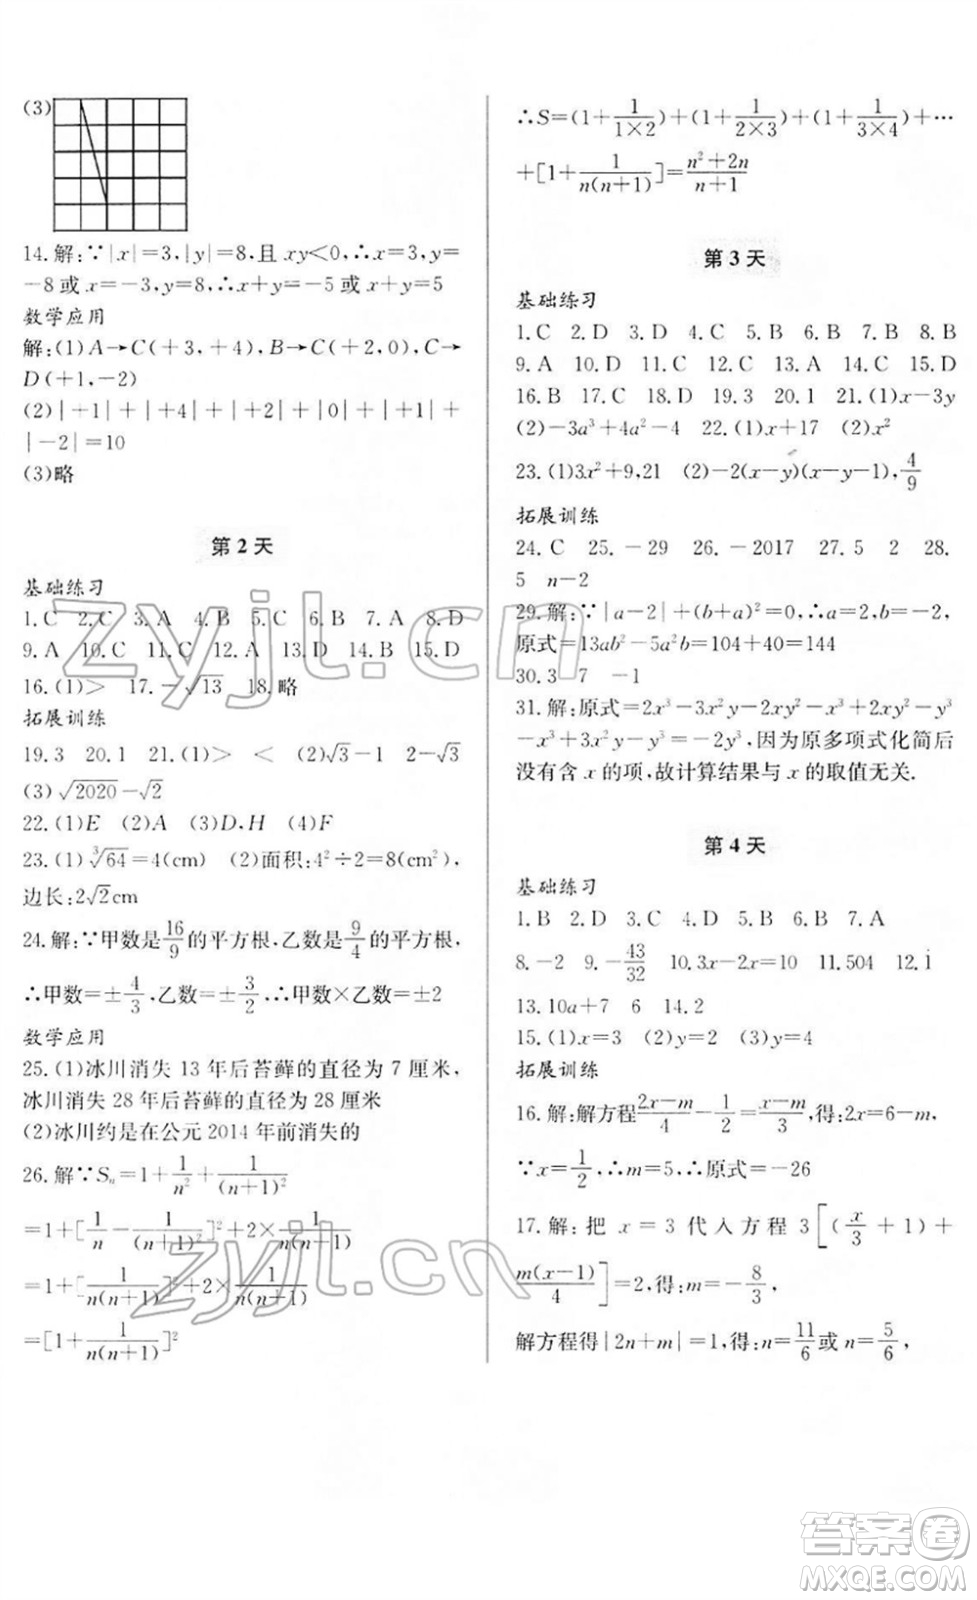 (3)
14.解:∵|x|=3,|y|=8,且 xy<0,∴x=3,y=
-8或x=-3,y=8,∴x+y=-5或x+y=5
数学应用
解:(1)A→C(+3,+4),B→C(+2,0),C→
D(+1,-2)
(2)|+1|+|+4|+|+2|+|0|+|+1|+
|-2|=10
(3)略
第2天
基础练习
1.C 2.C 3.A 4.B 5.C 6.B 7.A 8.D
9.A 10.C 11.C 12.A 13.D 14.B 15.D
16.(1)> 17.-√13 18.略
拓展训练
19.3 20.1 21.(1)> < (2)√3-1 2-√3
(3)√2020-√2
22.(1)E (2)A (3)D,H (4)F
23.(1)∛64=4(cm) (2)面积:4²÷2=8(cm²),
边长:2√2cm
24.解:∵甲数是16/9的平方根,乙数是9/4的平方根,
∴甲数=±4/3,乙数=±3/2,∴甲数×乙数=±2
数学应用
25.(1)冰川消失 13 年后苔藓的直径为 7 厘米,
冰川消失 28 年后苔藓的直径为 28 厘米
(2)冰川约是在公元 2014 年前消失的
26.解∵Sₙ=1+1/n²+1/(n+1)²
=1+[1/n-1/(n+1)]²+2×1/n(n+1)
=1+[1/n(n+1)]²+2×1/n(n+1)
=[1+1/n(n+1)]²
∴S=(1+1/1×2)+(1+1/2×3)+(1+1/3×4)+…
+[1+1/n(n+1)]=n²+2n/n+1
第3天
基础练习
1.C 2.D 3.D 4.C 5.B 6.B 7.B 8.B
9.A 10.D 11.D 12.A 13.A 14.C 15.D
16.B 17.C 18.D 19.3 20.1 21.(1)x-3y
(2)-3a³+4a²-4 22.(1)x+17 (2)x²
23.(1)3x²+9,21 (2)-2(x-y)(x-y-1),4/9
拓展训练
24.C 25.-29 26.-2017 27.5 2 28.
5 n-2
29.解:∵|a-2|+(b+a)²=0,∴a=2,b=-2,
原式=13ab²-5a²b=104+40=144
30.3 7 -1
31.解:原式=2x³-3x²y-2xy²-x³+2xy²-y³
-x³+3x²y-y³=-2y³,因为原多项式化简后
没有含 x 的项,故计算结果与 x 的取值无关.
第4天
基础练习
1.B 2.D 3.C 4.C 5.B 6.C 7.A
8.-2 9.-43/32 10.3x-2x=10 11.504 12.1
13.10a+7 6 14.2
15.(1)x=3 (2)y=3 (3)y=4
拓展训练
16.解:解方程2x-m/4-1/2=x-m/3,得:2x=6-m,
∵x=1/2,∴m=5,∴原式=-26
17.解:把 x=3 代入方程 3[(x/3+1)+
m(x-1)/4]=2,得:m=-8/3,
解方程得|2n+m|=1,得:n=11/6或n=5/6,
zyjl.cn
zyjl.cn
答案卷
MXQE.COM